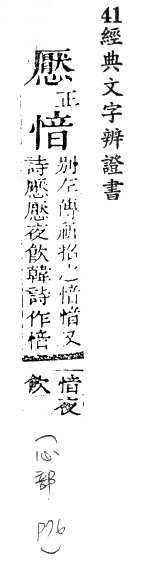 41經典文字辨證書
懕正
愔
別左傳祈招之愔愔又
詩懕懕夜飲韓詩作愔
愔夜
飲
(心部 P76)